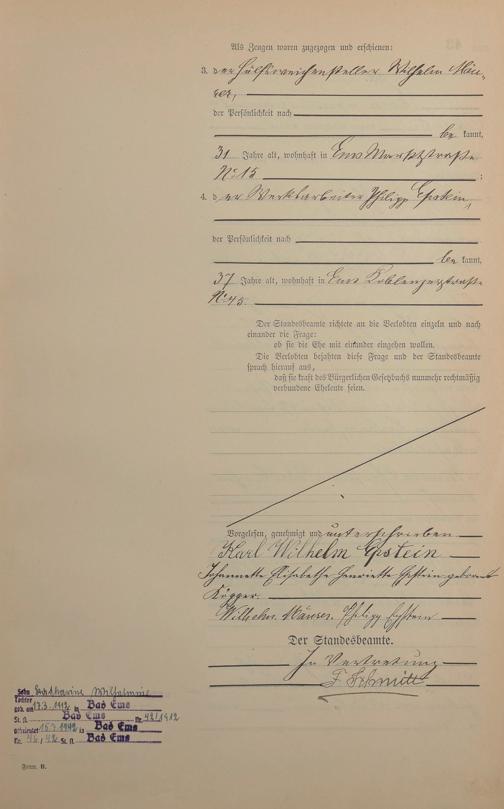 Als Zeugen waren zugezogen und erschienen:
3. der Hülfsweichensteller Wilhelm Mäu-
rer,
der Persönlichkeit nach
be kannt,
31 Jahre alt, wohnhaft in Ems Marktstraße
No 15 ;
4. der Werkarbeiter Philipp Epstein,
der Persönlichkeit nach
be kannt,
37 Jahre alt, wohnhaft in Ems Koblenzerstraße
No 45.
Der Standesbeamte richtete an die Verlobten einzeln und nach
einander die Frage:
ob sie die Ehe mit einander eingehen wollen.
Die Verlobten bejahten diese Frage und der Standesbeamte
sprach hierauf aus,
daß sie kraft des Bürgerlichen Gesetzbuchs nunmehr rechtmäßig
verbundene Eheleute seien.
Vorgelesen, genehmigt und unterschrieben
Karl Wilhelm Epstein
Johannette Elisabethe Henriette Epstein geborene
Küpper.
Wilhelm Mäurer. Philipp Epstein
Der Standesbeamte.
In Vertretung
F Schmitt
Sohn Katharine Wilhelmine
Tochter
geb. am 17.3.1912 in Bad Ems
St. A. Bad Ems Nr. 42/1912
1942 in Bad Ems
Nr. /42 St. A. Bad Ems
Form. B.